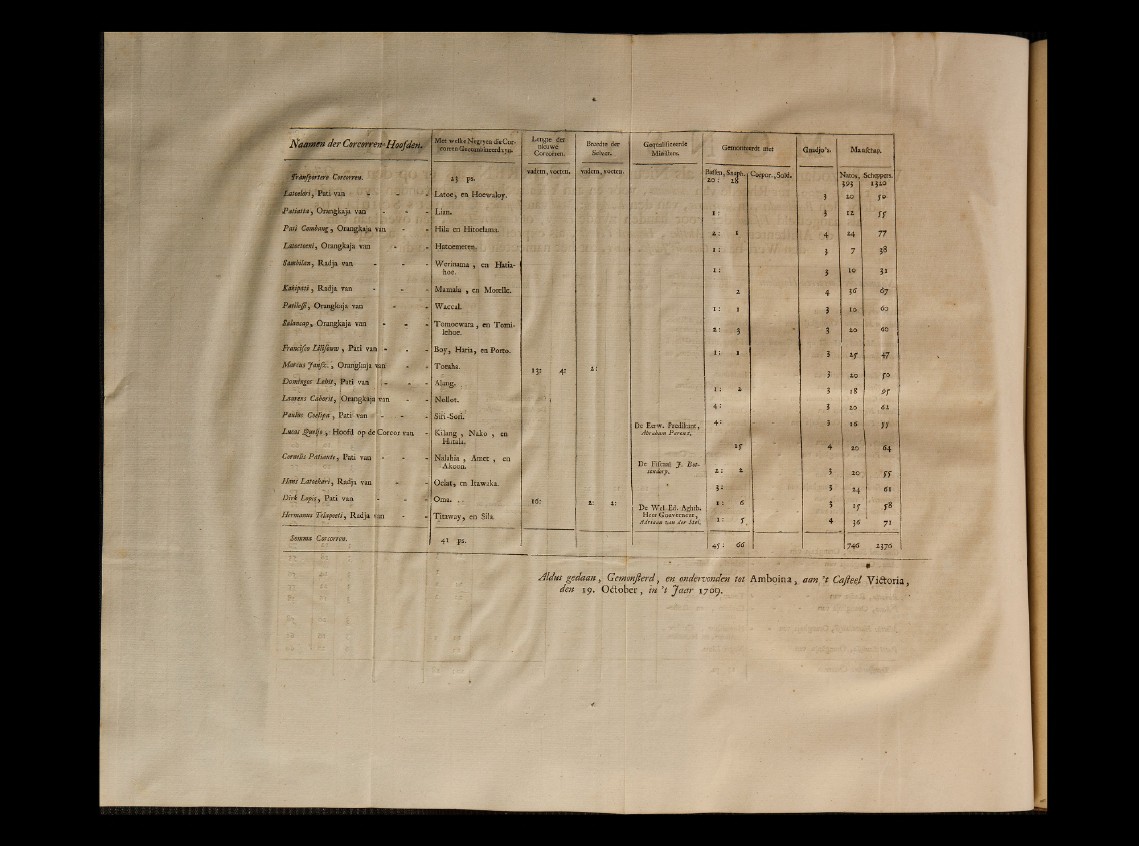 Naamen der Corcorren-Hoofden. Met welke Negryen die Cor-corren Geconbineerd zyn. Lengte der nieuwe Corcorren. Breedte der Selver. Gequalificeerde Ministers. Gemonteerdt met Gnadjo's. Manschap.
Transportere Corcorren. 23 ps. vadem, voeten. vadem, voeten. Baffen, Snaph., Corpor., Sold. Natos, Scheppers.
20: 28 393 1320
Latoelori, Pati van - - - Latoe, en Hoewaloy. 3 20 50
Patiatta, Orangkaja van - - - Lian. 1: 3 12 55
Pati Combang, Orangkaja van - - Hila en Hitoelama. 2: 1 4 24 77
Latoetoeni, Orangkaja van - - Hatoemeten. 1: 3 7 38
Sambilan, Radja van - - - Werinama, en Hatia-hoe. 1: 3 10 31
Kakipati, Radja van - - - Mamala, en Moselle. 2 4 36 67
Patilessi, Orangkaja van - - Waccal. 1: 1 3 10 60
Salancap, Orangkaja van - - - Tomoewara, en Tomi-lehoe. 2: 3 3 20 60
Francisco Lilisouw, Pati van - - - Boy, Haria, en Porto. 1: 1 3 25 47
Marcus Jansz., Orangkaja van - - Toeaha. 13: 4: 2: 3 20 50
Domingos Lebit, Pati van - - - Alang. 1: 2 3 18 95
Laurens Caborit, Orangkaja van - - Nollot. 4: 3 20 62
Paulus Coelipa, Pati van - - - Siri-Sori. 4: 3 16 55
Lucas Queljo, Hoofd op de Corcor van - Kilang, Nako, en Hatala. De Eerw. Predikant, Abraham Parent. 15 4 20 64
Cornelis Patiante, Pati van - - - Nalahia, Amet, en Akoon. De Fiscaal J. 2: 2 3 20 55
Hans Latoehari, Radja van - - Oelat, en Itawaka. 3: 3 24 61
Dirk Lopis, Pati van - - - Oma. 16: 2: 2: De Wel Ed. Agtb. Heer Gouverneur, Adriaan van der Stel. 1: 6 3 15 58
Hermanus Telapoeti, Radja van - - Titaway, en Sila. 1: 5 4 36 71
Somma Corcorren. 41 ps. 45: 66 746 2376
Aldus gedaan, Gemonsterd, en ondervonden tot Amboina, aan 't Casteel Victoria,
den 19. October, in 't Jaar 1709.